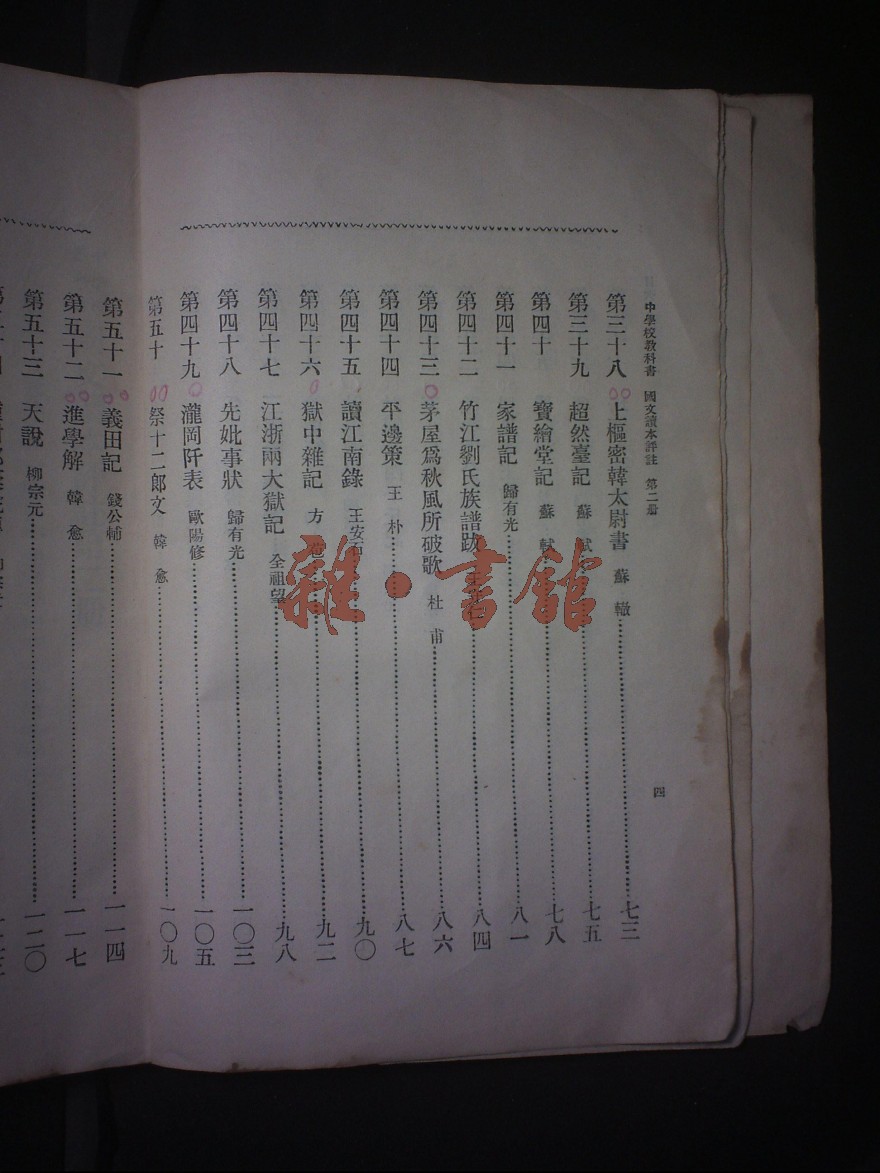 中學校教科書 國文讀本評註 第二册
四
第三十八 上樞密韓太尉書 蘇轍 七三
第三十九 超然臺記 蘇軾 七五
第四十 寶繪堂記 蘇軾 七八
第四十一 家譜記 歸有光 八一
第四十二 竹江劉氏族譜跋 八四
第四十三 茅屋爲秋風所破歌 杜甫 八六
第四十四 平邊策 王朴 八七
第四十五 讀江南錄 王安石 九〇
第四十六 獄中雜記 方 九二
第四十七 江浙兩大獄記 全祖望 九八
第四十八 先妣事狀 歸有光 一〇三
第四十九 瀧岡阡表 歐陽修 一〇五
第五十 祭十二郎文 韓愈 一〇九
第五十一 義田記 錢公輔 一一四
第五十二 進學解 韓愈 一一七
第五十三 天說 柳宗元 一二〇
雜·書館